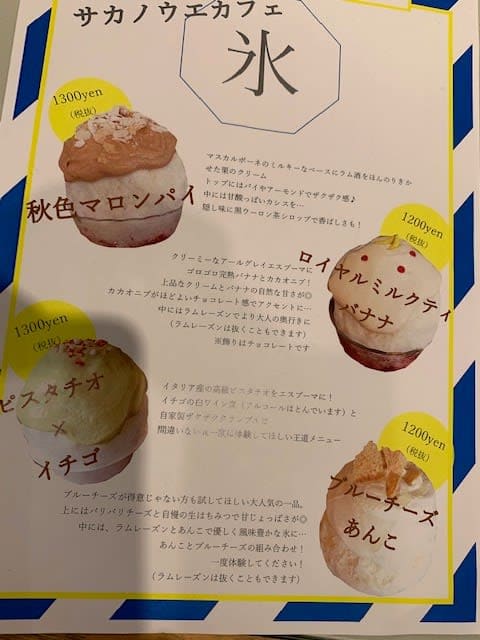 サカノウエカフェ
氷
1300yen
(税抜)
秋色マロンパイ
マスカルポーネのミルキーなベースにラム酒をほんのりきか
せた栗のクリーム
トップにはパイやアーモンドでザクザク感♪
中には甘酸っぱいカシスを…
隠し味に黒ウーロン茶シロップで香ばしさも！
1200yen
(税抜)
ロイヤルミルクティ
バナナ
クリーミーなアールグレイエスプーマに
ゴロゴロ完熟バナナとカカオニブ！
上品なクリームとバナナの自然な甘さが◎
カカオニブがほどよいチョコレート感でアクセントに…
中にはラムレーズンでより大人の奥行きに
（ラムレーズンは抜くこともできます）
※飾りはチョコレートです
1300yen
(税抜)
ピスタチオ
×
イチゴ
イタリア産の高級ピスタチオをエスプーマに！
イチゴの白ワイン煮（アルコールはとんでいます）と
自家製ザクザククランブルで
間違いない一度に体験してほしい王道メニュー
1200yen
(税抜)
ブルーチーズ
あんこ
ブルーチーズが得意じゃない方も試してほしい大人気の一品。
上にはパリパリチーズと自慢の生はちみつで甘じょっぱさが◎
中には、ラムレーズンとあんこで優しく風味豊かな氷に…
あんことブルーチーズの組み合わせ！
一度体験してください！
（ラムレーズンは抜くこともできます）